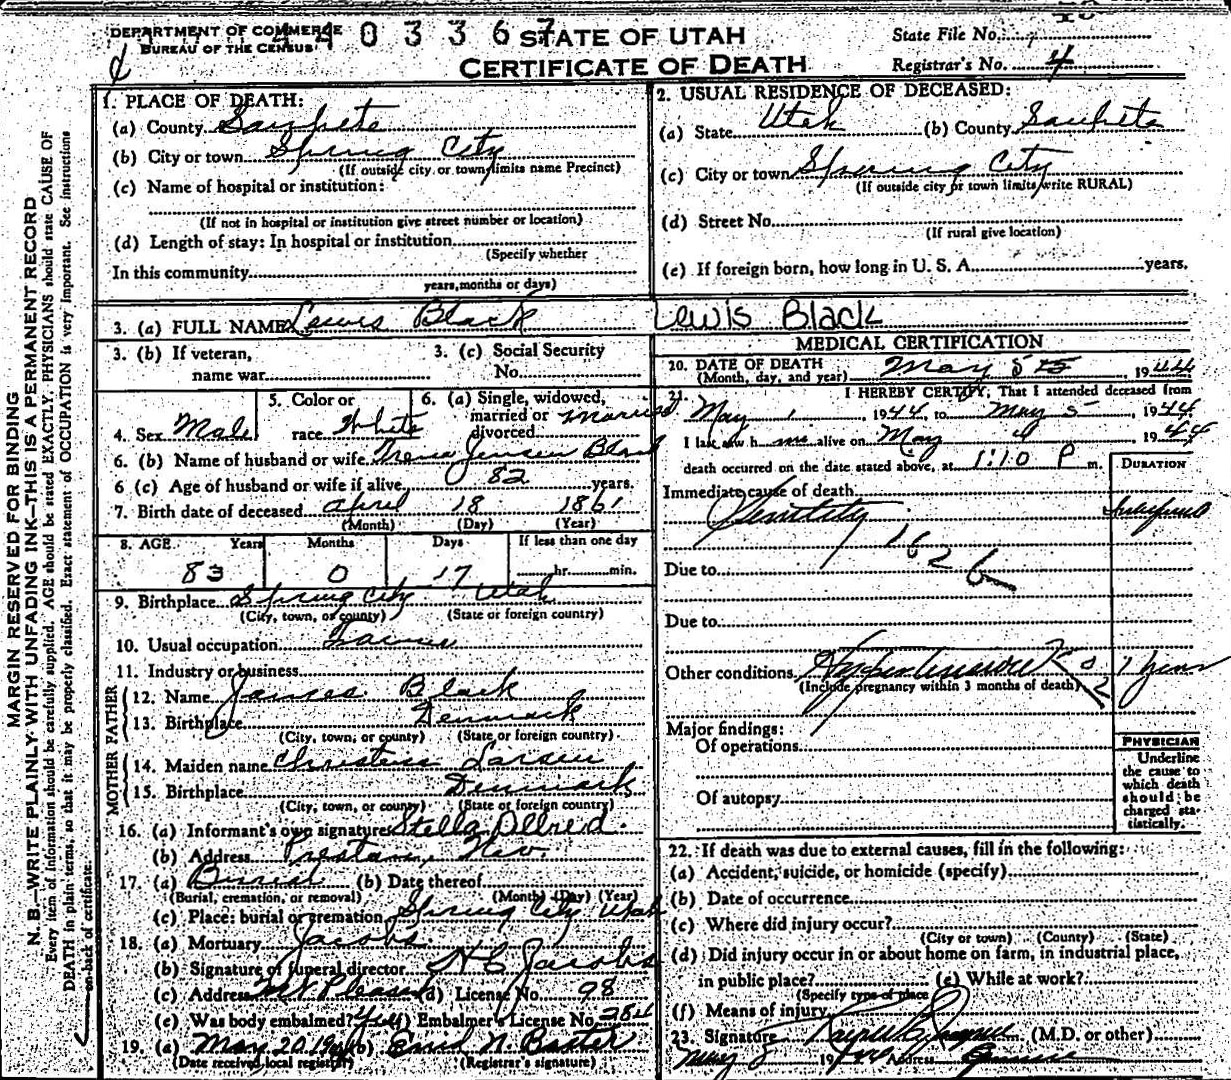 DEPARTMENT OF COMMERCE
BUREAU OF THE CENSUS
4403367
STATE OF UTAH
CERTIFICATE OF DEATH
State File No.
Registrar's No. 4
MARGIN RESERVED FOR BINDING
N. B.—WRITE PLAINLY WITH UNFADING INK—THIS IS A PERMANENT RECORD
Every item of information should be carefully supplied. AGE should be stated EXACTLY. PHYSICIANS should state CAUSE OF
DEATH in plain terms, so that it may be properly classified. Exact statement of OCCUPATION is very important. See instructions
on back of certificate.
1. PLACE OF DEATH:
(a) County Sanpete
(b) City or town Spring City
(If outside city or town limits name Precinct)
(c) Name of hospital or institution:
(If not in hospital or institution give street number or location)
(d) Length of stay: In hospital or institution
(Specify whether
In this community
years, months or days)
2. USUAL RESIDENCE OF DECEASED:
(a) State Utah (b) County Sanpete
(c) City or town Spring City
(If outside city or town limits write RURAL)
(d) Street No.
(If rural give location)
(e) If foreign born, how long in U. S. A. years.
3. (a) FULL NAME Lewis Black Lewis Black
3. (b) If veteran,
name war
3. (c) Social Security
No.
4. Sex Male
5. Color or
race White
6. (a) Single, widowed,
married or
divorced Married
6. (b) Name of husband or wife Jensen Black
6 (c) Age of husband or wife if alive 82 years.
7. Birth date of deceased April 18 1861
(Month) (Day) (Year)
8. AGE Years Months Days If less than one day
83 0 17 hr. min.
9. Birthplace Spring City Utah
(City, town, or county) (State or foreign country)
10. Usual occupation Farmer
11. Industry or business
FATHER
12. Name James Black
13. Birthplace Denmark
(City, town, or county) (State or foreign country)
MOTHER
14. Maiden name Larsen
15. Birthplace Denmark
(City, town, or county) (State or foreign country)
16. (a) Informant's own signature Stella Allred.
(b) Address Preston, Nev.
17. (a) Burial (b) Date thereof
(Burial, cremation, or removal) (Month) (Day) (Year)
(c) Place: burial or cremation Spring City Utah
18. (a) Mortuary Jacobs
(b) Signature of funeral director H C Jacobs
(c) Address Mt Pleasant (d) License No. 98
(e) Was body embalmed? yes (f) Embalmer's License No. 284
19. (a) May 20, 1944 (b) Enid N. Baxter
(Date received local registrar) (Registrar's signature)
MEDICAL CERTIFICATION
20. DATE OF DEATH
(Month, day, and year) May 5th, 1944
21. I HEREBY CERTIFY, That I attended deceased from
May 1, 1944, to May 5, 1944
I last saw him alive on May 4 1944
death occurred on the date stated above, at 1:10 P m.
DURATION
Immediate cause of death
Senility
162b
Due to
Due to
Other conditions 7 years
(Include pregnancy within 3 months of death)
Major findings:
Of operations
Of autopsy
PHYSICIAN
Underline
the cause to
which death
should be
charged sta-
tistically.
22. If death was due to external causes, fill in the following:
(a) Accident, suicide, or homicide (specify)
(b) Date of occurrence
(c) Where did injury occur?
(City or town) (County) (State)
(d) Did injury occur in or about home on farm, in industrial place,
in public place? (e) While at work?
(Specify type of place)
(f) Means of injury
23. Signature (M.D. or other)
May 8 1944 Address